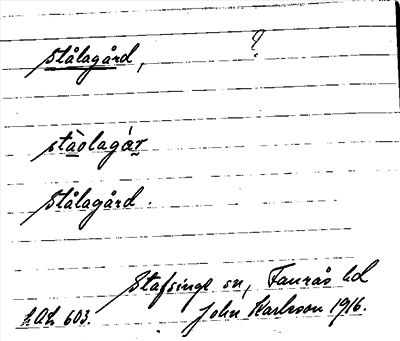 stålagård, ?
stàolagár
stålagård.
Stafsinge sn, Faurås hd
LAL 603. John Karlsson 1916.